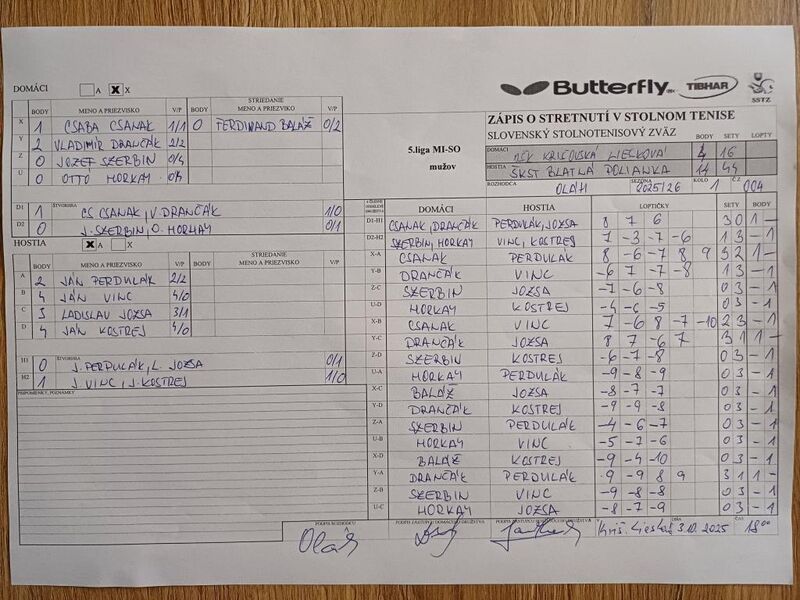 DOMÁCI A X X
STRIEDANIE
BODY MENO A PRIEZVISKO V/P BODY MENO A PRIEZVISKO V/P
X 1 CSABA CSANAK 1/1 0 FERDINAND BALÁŽ 0/2
Y 2 VLADIMÍR DRANČÁK 2/2
Z 0 JOZEF SZERBIN 0/4
U 0 OTTO MORKAY 0/4
D1 1 ŠTVORHRA CS CSANAK, V. DRANČÁK 1/0
D2 0 J. SZERBIN, O. MORKAY 0/1
HOSTIA X A X
STRIEDANIE
BODY MENO A PRIEZVISKO V/P BODY MENO A PRIEZVISKO V/P
A 2 JÁN PERDULÁK 2/2
B 4 JÁN VINC 4/0
C 3 LADISLAV JOZSA 3/1
D 4 JÁN KOSTREJ 4/0
H1 0 ŠTVORHRA J. PERDULÁK, L. JOZSA 0/1
H2 1 J. VINC, J. KOSTREJ 1/0
PRIPOMIENKY, POZNÁMKY
Butterfly TIBHAR SSTZ
5.liga MI-SO
mužov
ZÁPIS O STRETNUTÍ V STOLNOM TENISE
SLOVENSKÝ STOLNOTENISOVÝ ZVÄZ BODY SETY LOPTY
DOMÁCI KRIŠOVSKÁ LIESKOVÁ 4 16
HOSTIA ŠKST BLATNÁ POLIANKA 14 44
ROZHODCA OLÁH SEZÓNA 2025/26 KOLO 1 Č.Z. 004
DOMÁCI HOSTIA LOPTIČKY SETY BODY
D1-H1 CSANAK, DRANČÁK PERDULÁK, JOZSA 8 7 6 3 0 1 -
D2-H2 SZERBIN, MORKAY VINC, KOSTREJ 7 -3 -7 -6 1 3 - 1
X-A CSANAK PERDULÁK 8 -6 -7 8 9 3 2 1 -
Y-B DRANČÁK VINC -6 7 -7 -8 1 3 - 1
Z-C SZERBIN JOZSA -7 -6 -8 0 3 - 1
U-D MORKAY KOSTREJ -4 -6 -5 0 3 - 1
X-B CSANAK VINC 7 -6 8 -7 -10 2 3 - 1
Y-C DRANČÁK JOZSA 8 7 -6 7 3 1 1 -
Z-D SZERBIN KOSTREJ -6 -7 -8 0 3 - 1
U-A MORKAY PERDULÁK -9 -8 -9 0 3 - 1
X-C BALÁŽ JOZSA -8 -7 -7 0 3 - 1
Y-D DRANČÁK KOSTREJ -9 -9 -8 0 3 - 1
Z-A SZERBIN PERDULÁK -4 -6 -7 0 3 - 1
U-B MORKAY VINC -5 -7 -6 0 3 - 1
X-D BALÁŽ KOSTREJ -9 -4 -10 0 3 - 1
Y-A DRANČÁK PERDULÁK 9 -9 8 9 3 1 1 -
Z-B SZERBIN VINC -9 -8 -8 0 3 - 1
U-C MORKAY JOZSA -8 -7 -9 0 3 - 1
PODPIS ROZHODCU PODPIS ZÁSTUPCU DOMÁCEHO DRUŽSTVA V DŇA ČAS
Oláh 3.10.2025 18:00